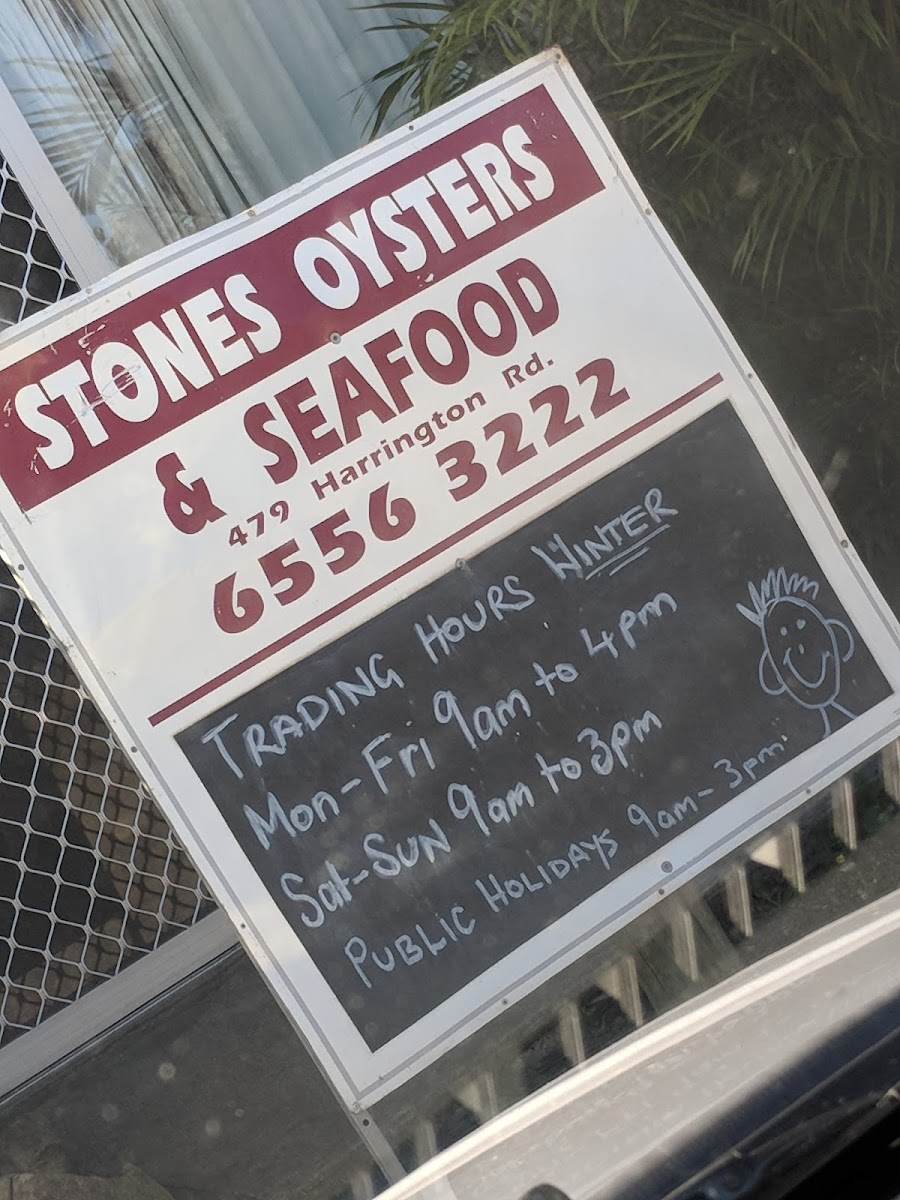 STONES OYSTERS
& SEAFOOD
479 Harrington Rd.
6556 3222
TRADING HOURS WINTER
Mon-Fri 9am to 4pm
Sat-SUN 9am to 3pm
PUBLIC HOLIDAYS 9am-3pm